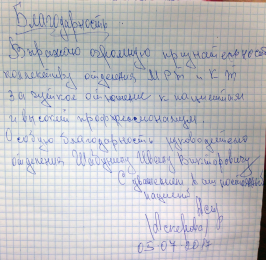 Благодарность.
Выражаю огромную признательность
коллективу отделения МРТ и КТ
за чуткое отношение к пациентам
и высокий профессионализм.
Особую благодарность руководителю
отделения Ивану Викторовичу
С уважением
05.07 2017